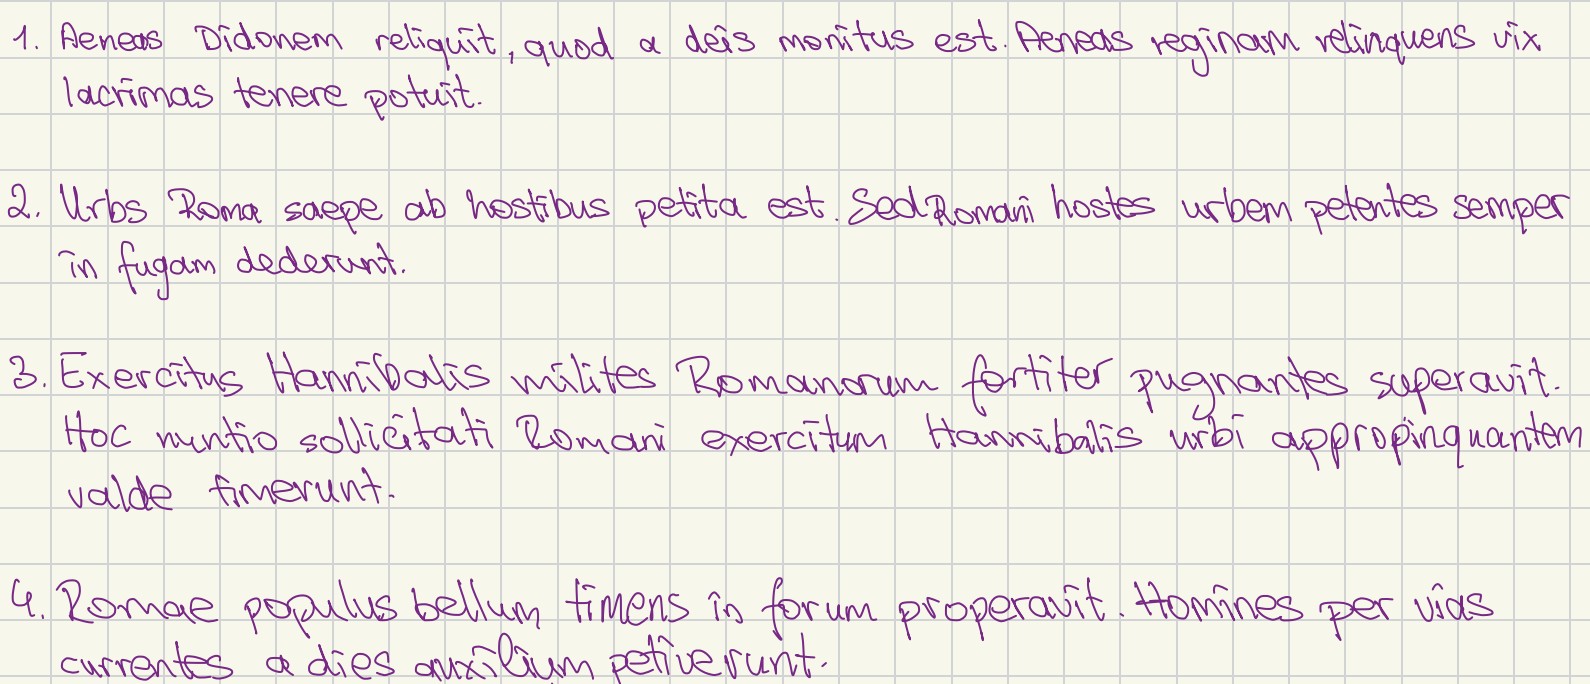 1. Aeneas Didonem reliquit, quod a deis monitus est. Aeneas reginam relinquens vix
lacrimas tenere potuit.
2. Urbs Roma saepe ab hostibus petita est. Sed Romani hostes urbem petentes semper
in fugam dederunt.
3. Exercitus Hannibalis milites Romanorum fortiter pugnantes superavit.
Hoc nuntio sollicitati Romani exercitum Hannibalis urbi appropinquantem
valde timerunt.
4. Romae populus bellum timens in forum properavit. Homines per vias
currentes a dies auxilium petiverunt.